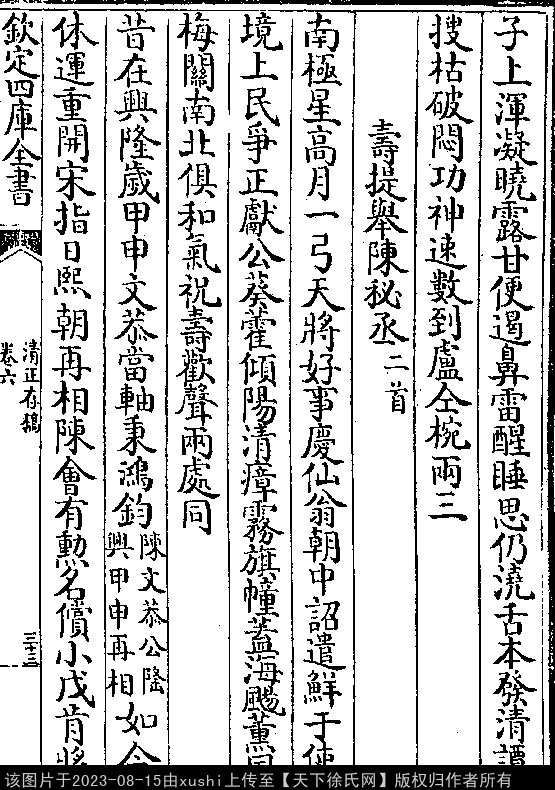 子上渾凝曉露甘便遏鼻雷醒睡思仍澆舌本發清譚
搜枯破悶功神速數到盧仝椀兩三
壽提舉陳秘丞二首
南極星高月一弓天將好事慶仙翁朝中詔遣鮮于使
境上民爭正獻公葵藿傾陽清瘴霧旗幢蓋海颺薰風
梅關南北俱和氣祝壽歡聲兩處同
昔在興隆歲甲申文恭當軸秉鴻鈞陳文恭公隆興甲申再相如今
休運重開宋指日熙朝再相陳會有勲名償小戊肯將
欽定四庫全書
清正存稿
卷六
三十三
该图片于2023-08-15由xushi上传至【天下徐氏网】版权归作者所有